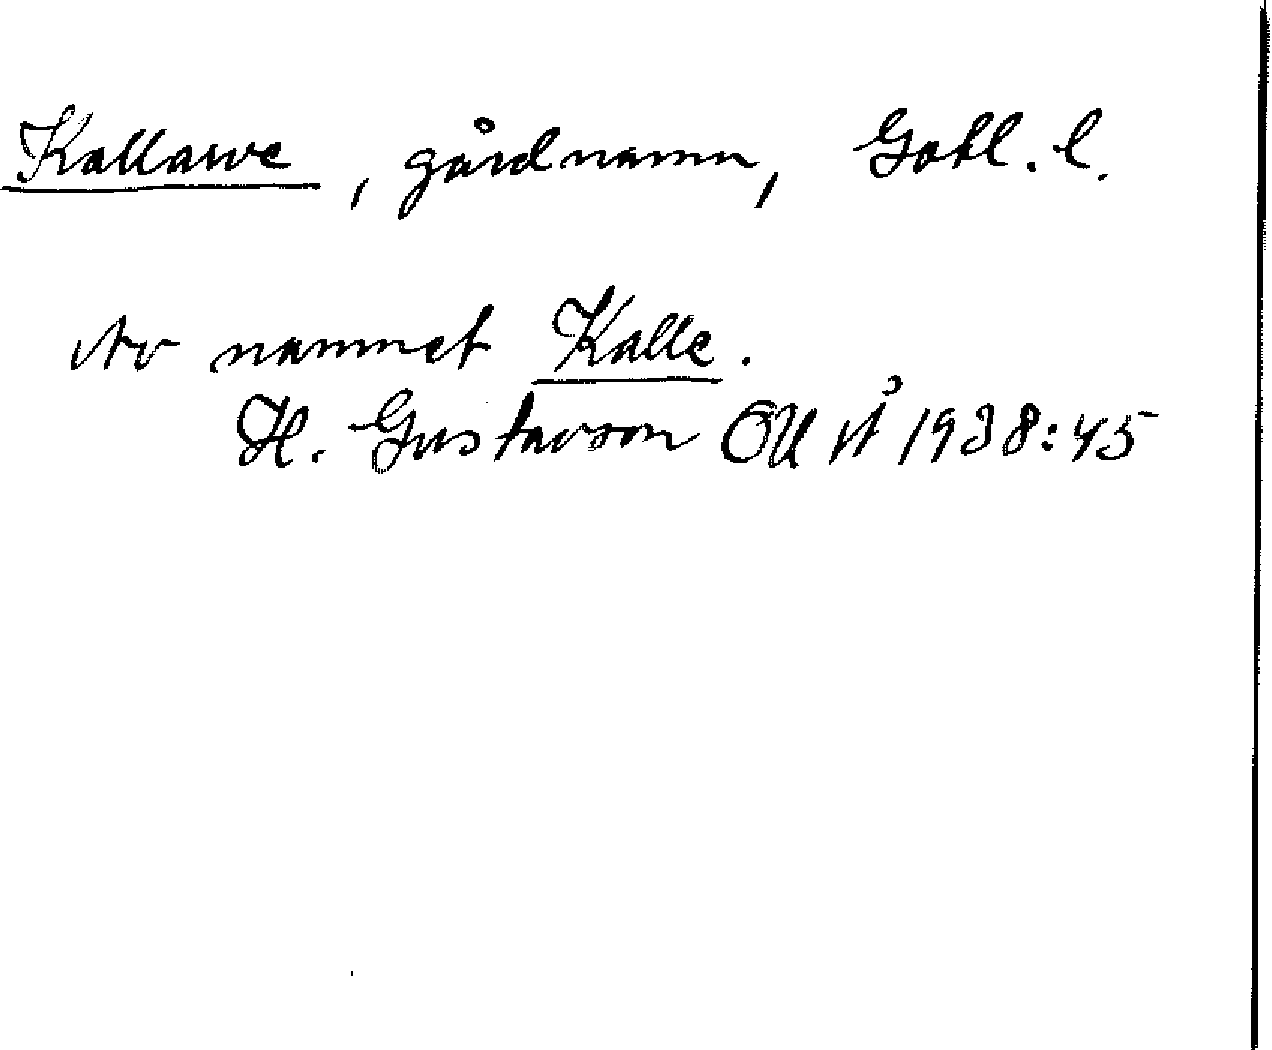 Kallarve, gårdnamn, Gotl. l.
Av namnet Kalle.
H. Gustavson OUÅ 1938:45